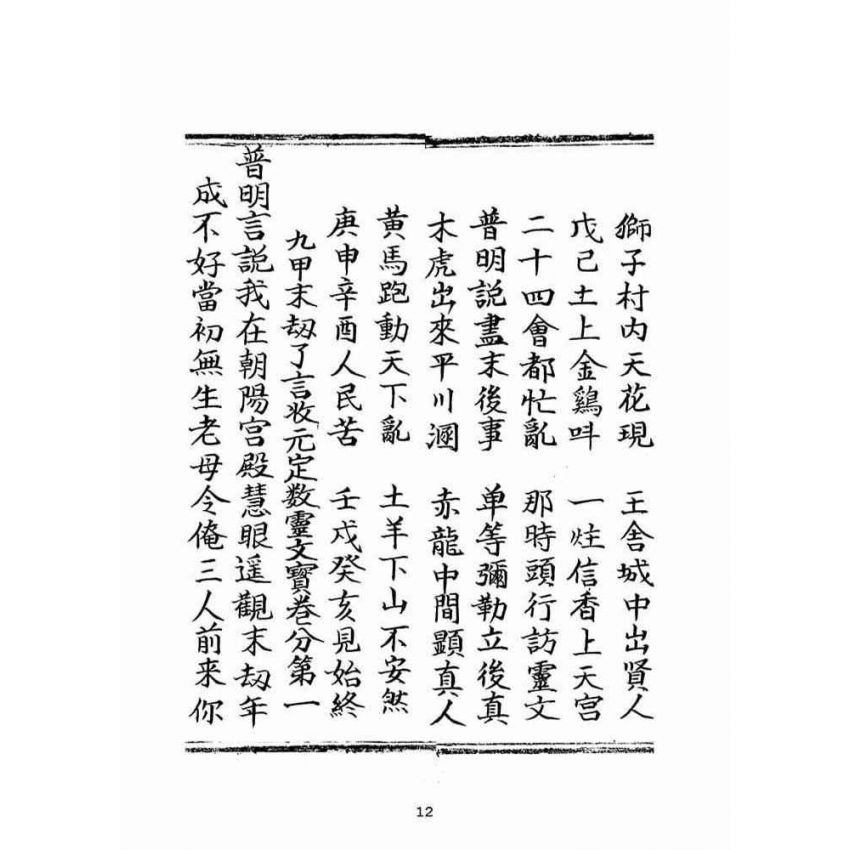 獅子村内天花現　王舍城中出賢人
戊己土上金鷄呌　一炷信香上天宫
二十四會都忙亂　那時頭行訪靈文
普明説盡末後事　单等彌勒立後真
木虎出來平川溷　赤龍中間顯真人
黄馬跑動天下亂　土羊下山不安然
庚申辛酉人民苦　壬戌癸亥見始終
九甲末刼了言收元定数靈文寳卷分第一
普明言説我在朝陽宫殿慧眼遥觀末刼年
成不好當初無生老母令俺三人前来你
12